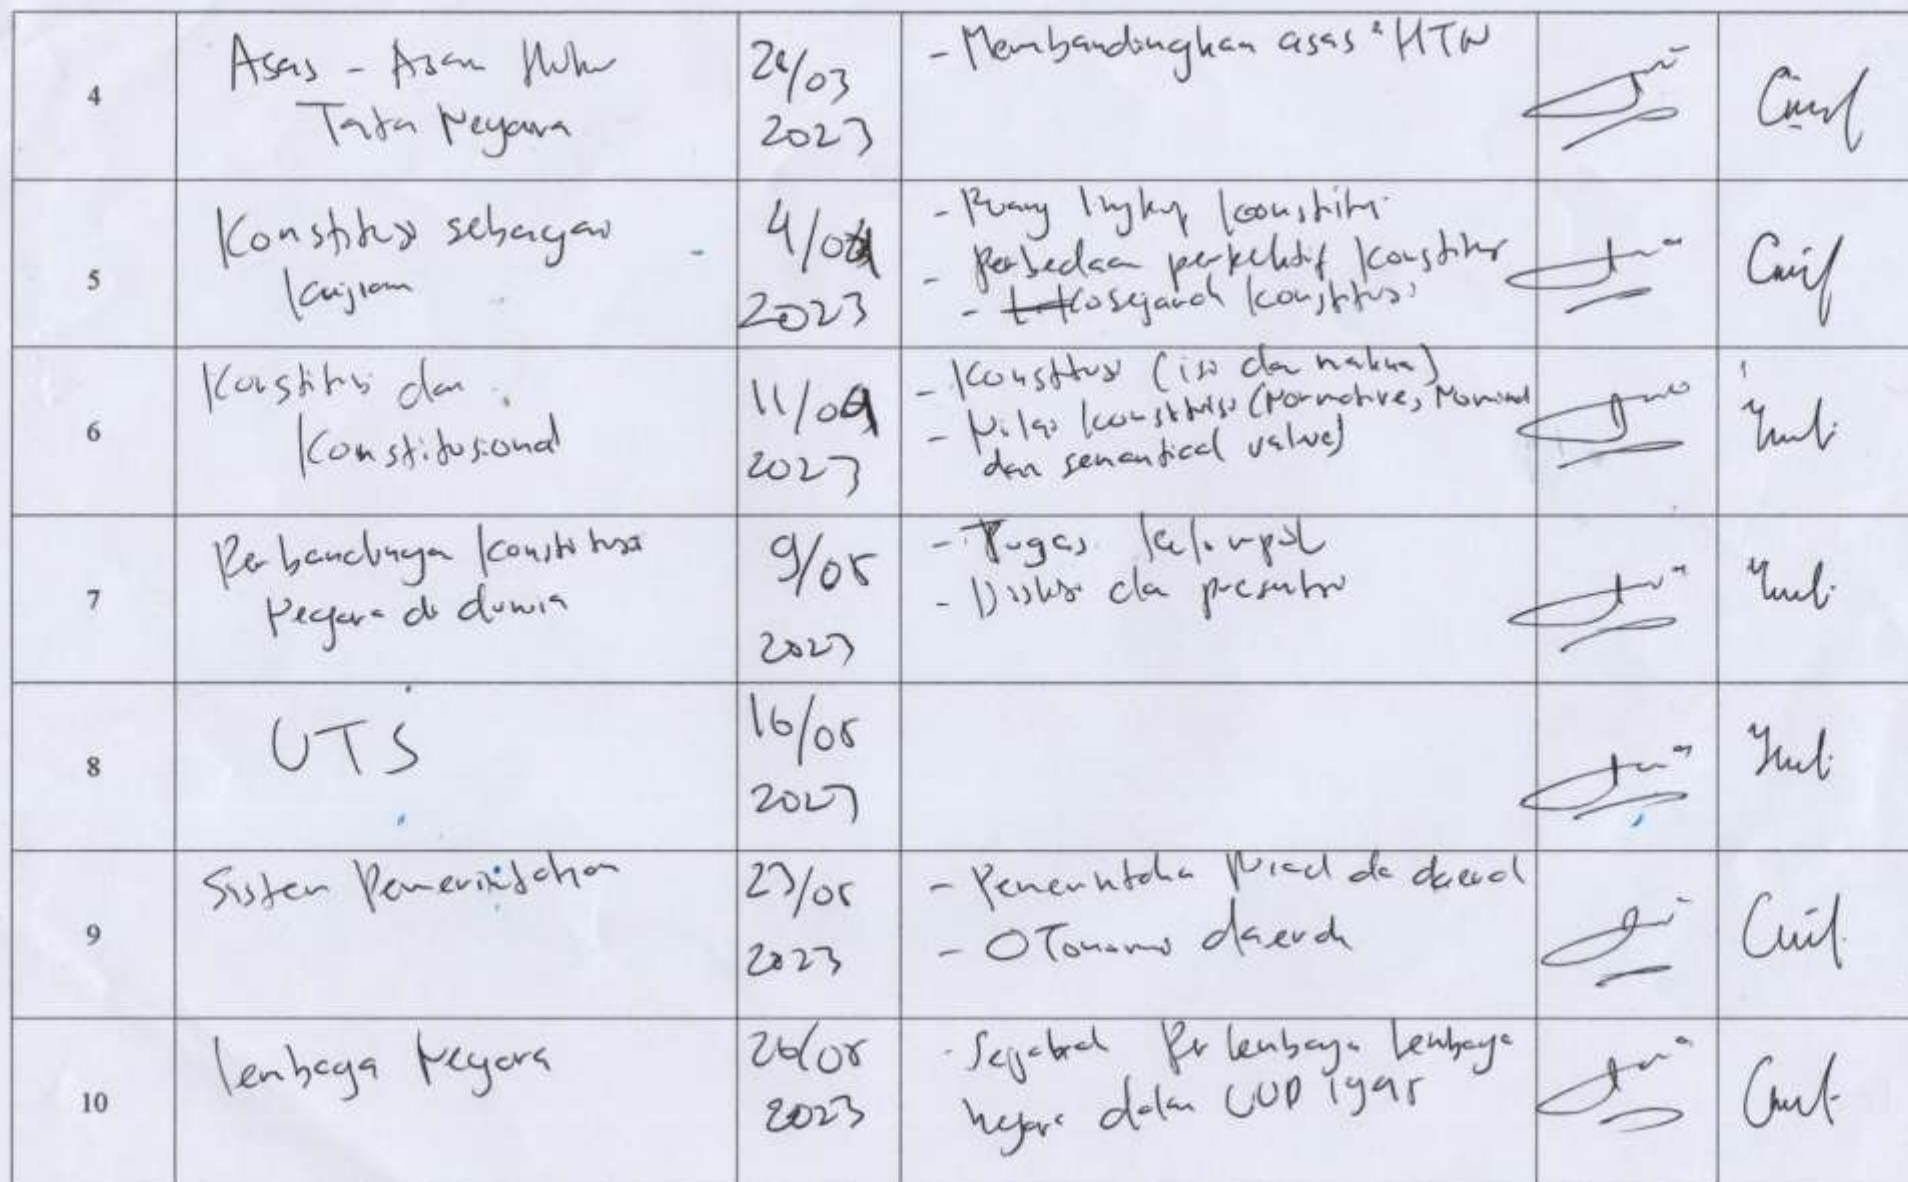 4
Asas - Asas Huku
Tata Negara
/03
2023
- Membandingkan asas ² HTN
5
Konstitusi sebagai
kajian
4/04
2023
- Ruang lingkup konstitusi
- Perbedaan konstitusi
- sejarah konstitusi
6
Konstitusi dan
Konstitusional
11/04
2023
- Konstitusi (isi dan makna)
- Nilai konstitusi (Normative, Nominal
dan semantical value)
7
Perbandingan konstitusi
Negara di dunia
9/05
2023
- Tugas kelompok
- Diskusi dan presentasi
8
UTS
16/05
2023
9
Sistem Pemerintahan
23/05
2023
- Pemerintahan Pusat dan daerah
- OTonomi daerah
10
lembaga Negara
26/05
2023
- lembaga
negara dalam UUD 1945